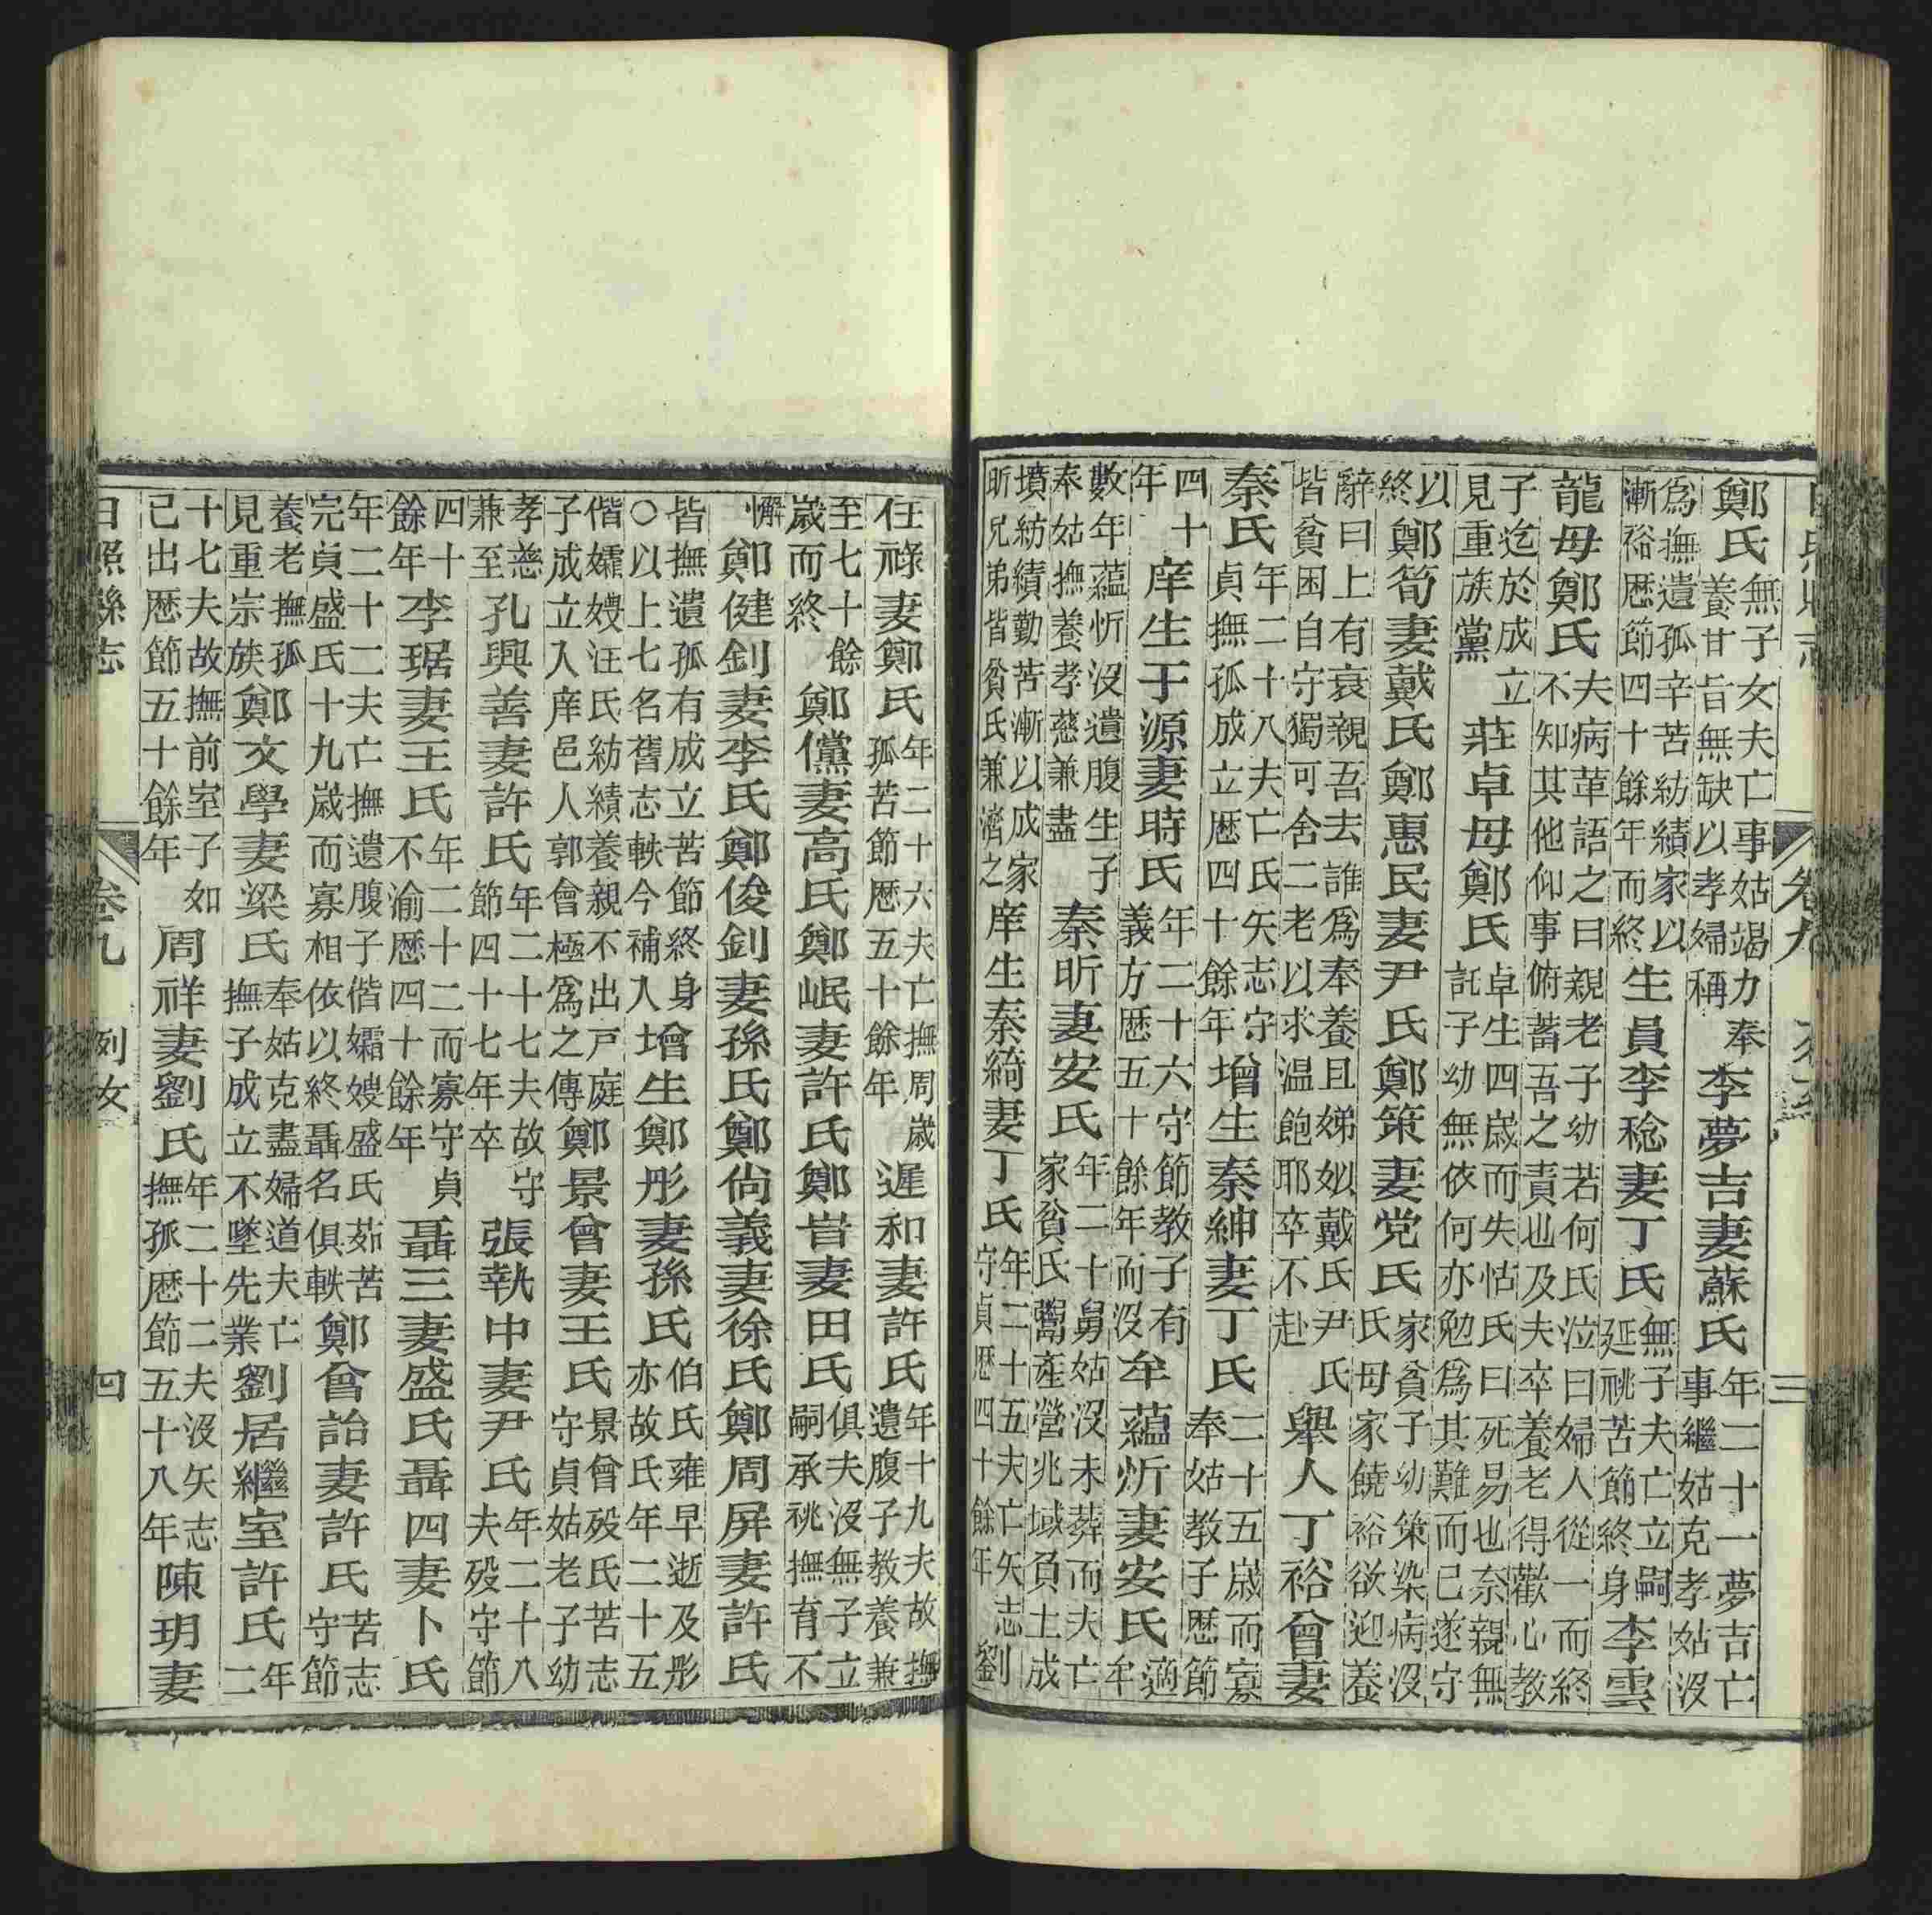 卷九 三
鄭氏無子女夫亡事姑竭力奉養甘旨無缺以孝婦稱李夢吉妻蘇氏年二十一夢吉亡事繼姑克孝姑沒
為撫遺孤辛苦紡績家以漸裕歷節四十餘年而終生員李稔妻丁氏無子夫亡立嗣延祧苦節終身李雲
龍母鄭氏夫病革語之曰親老子幼若何氏泣曰婦人從一而終不知其他仰事俯蓄吾之責也及夫卒養老得歡心教
子迄於成立見重族黨莊卓母鄭氏卓生四歲而失怙氏曰死易也奈親無託子幼無依何亦勉為其難而已遂守
以終鄭筍妻戴氏鄭惠民妻尹氏鄭策妻党氏家貧子幼策染病沒氏母家饒裕欲迎養
辭曰上有衰親吾去誰為奉養且娣姒戴氏尹氏皆貧困自守獨可舍二老以求温飽耶卒不赴舉人丁裕曾妻
秦氏年二十八夫亡氏矢志守貞撫孤成立歷四十餘年增生秦紳妻丁氏二十五歲而寡奉姑教子歷節
四十年庠生于源妻時氏年二十六守節教子有義方歷五十餘年而沒牟蘊炘妻安氏適牟
數年蘊忻沒遺腹生子奉姑撫養孝慈兼盡秦昕妻安氏年二十舅姑沒未葬而夫亡家貧氏鬻產營兆域負土成
墳紡績勤苦漸以成家昕兄弟皆貧氏兼濟之庠生秦綺妻丁氏年二十五夫亡矢志守貞歷四十餘年劉
在祿妻鄭氏年二十六夫亡撫周歲孤苦節歷五十餘年遲和妻許氏年十九夫故撫遺腹子教養兼
至七十餘歲而終鄭儻妻高氏鄭岷妻許氏鄭岧妻田氏俱夫沒無子立嗣承祧撫育不
懈鄭健釗妻李氏鄭俊釗妻孫氏鄭尙義妻徐氏鄭周屏妻許氏
皆撫遺孤有成立苦節終身○以上七名舊志軼今補入增生鄭彤妻孫氏伯氏雍早逝及彤亦故氏年二十五
偕孀嫂汪氏紡績養親不出戶庭子成立入庠邑人郭會極為之傳鄭景曾妻王氏景曾歿氏苦志守貞姑老子幼
孝慈兼至孔興善妻許氏年二十七夫故守節四十七年卒張執中妻尹氏年二十八夫歿守節
四十餘年李琚妻王氏年二十二而寡守貞不渝歷四十餘年聶三妻盛氏聶四妻卜氏
年二十二夫亡撫遺腹子偕孀嫂盛氏茹苦完貞盛氏十九歲而寡相依以終聶名俱軼鄭會詒妻許氏苦志守節
養老撫孤見重宗族鄭文學妻梁氏奉姑克盡婦道夫亡撫子成立不墜先業劉居繼室許氏年二
十七夫故撫前室子如己出歷節五十餘年周祥妻劉氏年二十二夫沒矢志撫孤歷節五十八年陳玥妻
日照縣志 卷九 列女 四